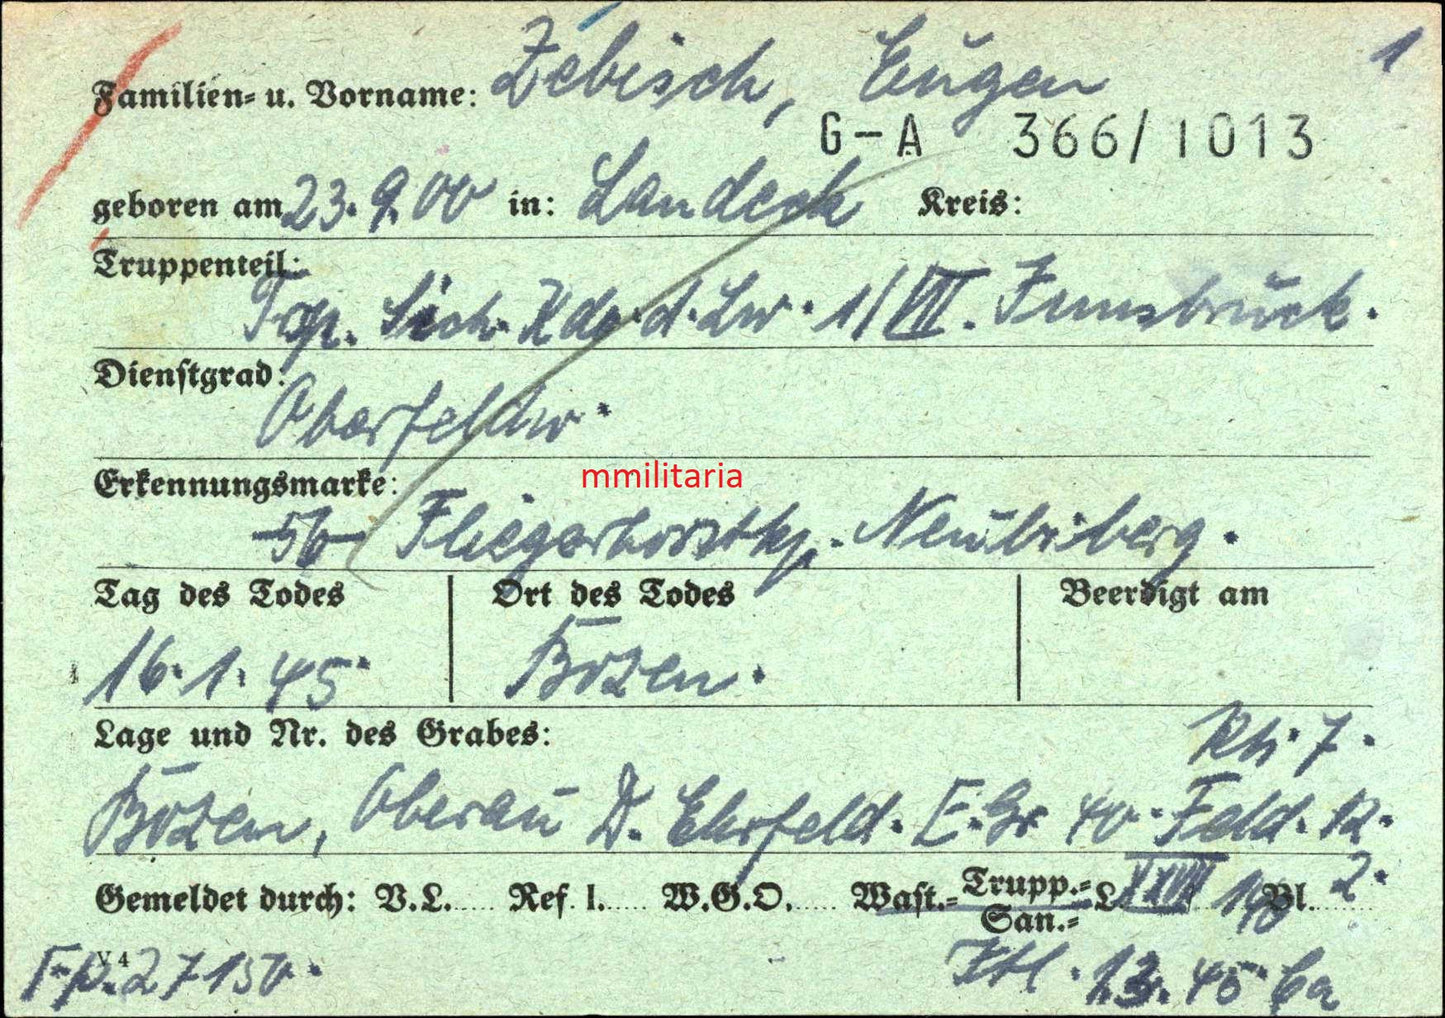 1
Familien- u. Vorname: Zebisch, Eugen
G-A 366/1013
geboren am 23.9.00 in: Landeck Kreis:
Truppenteil:
Kdo. d. Lw. 1/VII. Innsbruck.
Dienstgrad:
Oberfeldw.
Erkennungsmarke:
-56- Fliegerhorstkp. Neubiberg.
Tag des Todes Ort des Todes Beerdigt am
16.1.45. Bozen.
Lage und Nr. des Grabes: Rh. 7.
Bozen, Oberau D. Ehrfeld. E. Gr. 40. Feld. 12.
Gemeldet durch: V.L..... Ref I..... W.G.O..... Wast.- Trupp.- L XXVII 140 Bl. 2.
San.-
V 4
F.p. 27150. 13. 45
mmilitaria